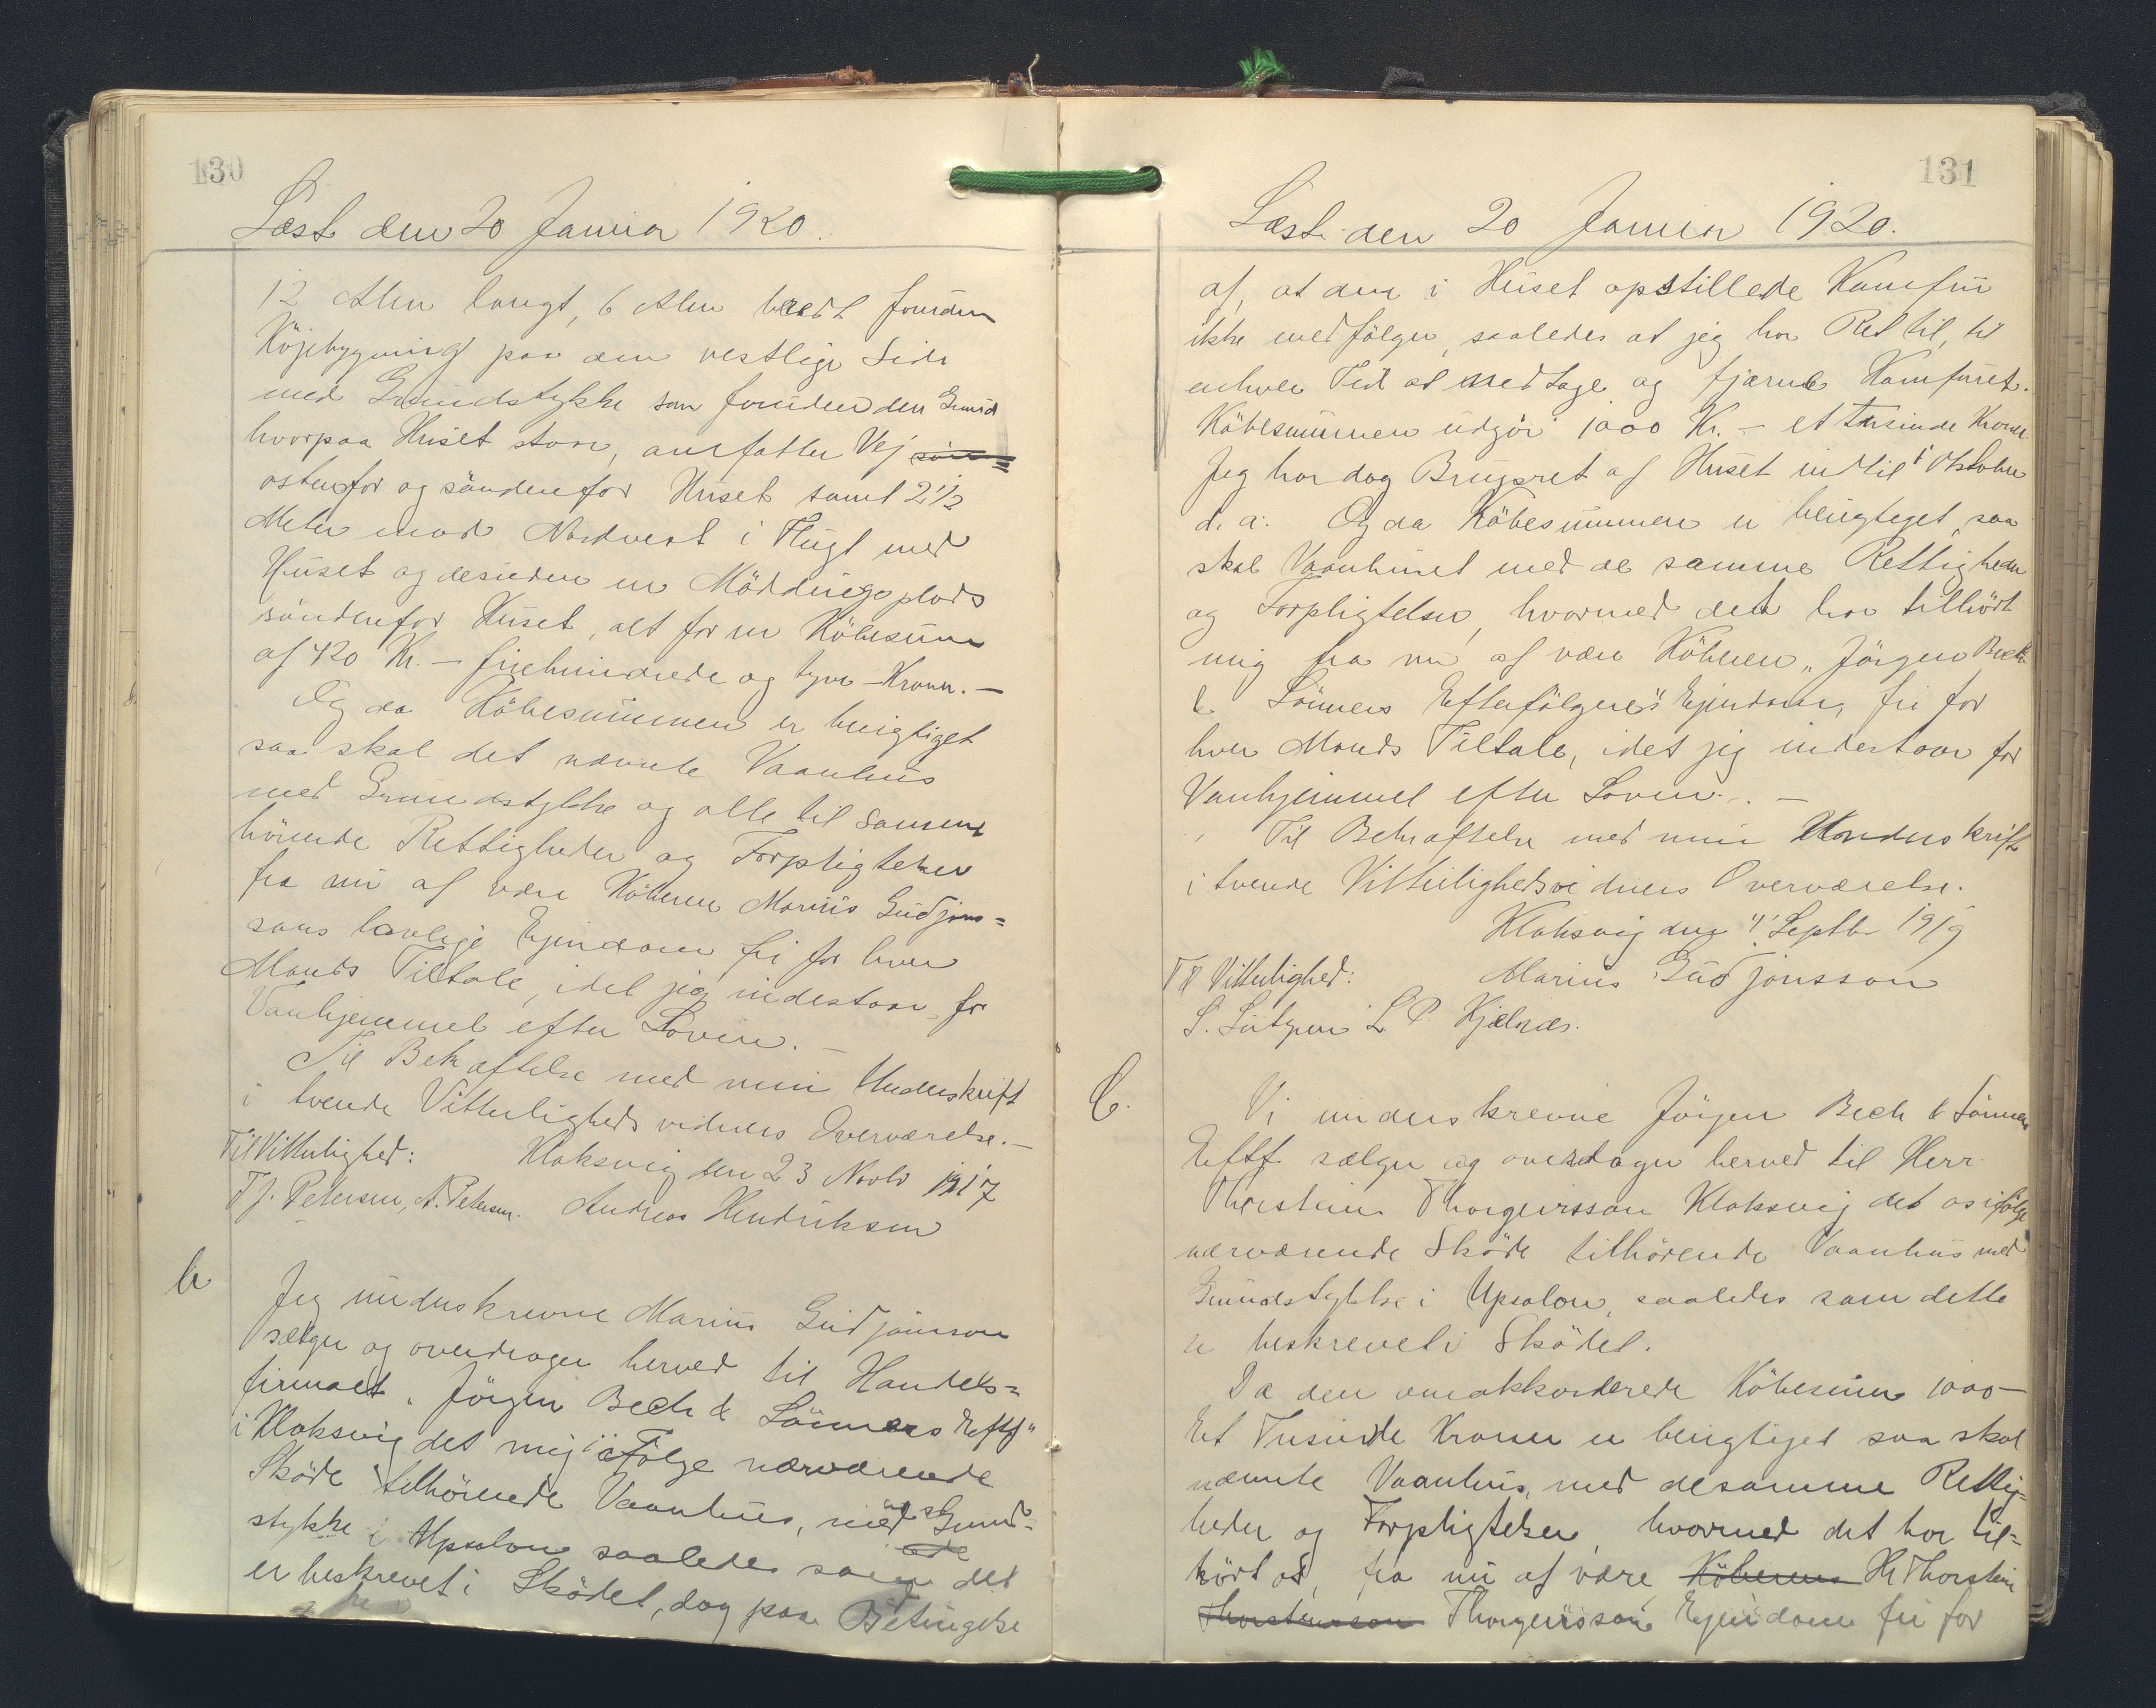 130
Læst den 20 Januar 1920.
12 Alen langt, 6 Alen bredt foruden
Köjebygning paa den vestlige Side
med Grundstykke som foruden den Grund
hvorpaa Huset staar, omfatter Vej
östenfor og söndenfor Huset samt 2 1/2
Meter mod Nordvest i Flugt med
Huset og desuden en Möddingsplads
söndenfor Huset, alt for en Köbesum
af 420 Kr. – firehundrede og tyve – Kroner. –
Og da Köbesummen er berigtiget
saa skal det nævnte Vaanhus
med Grundstykke og alle til samme
hörende Rettigheder og Forpligtelser
fra nu af være Köberen Marius Gudjons=
sons lovlige Ejendom fri for hver
Mands Tiltale, idet jeg indestaar for
Vanhjemmel efter Loven. –
Til Bekræftelse med min Underskrift
i tvende Vitterligheds vidners Overværelse. –
Til Vitterlighed: Klaksvig den 23 Novbr 1917
T J. Petersen, A. Petersen. Andreas Hendriksen
b
Jeg underskrevne Marius Gudjonsson
sælger og overdrager herved til Handels=
firmaet „Jörgen Bech & Sönners Eftf"
i Klaksvig det mig i Fölge nærværende
Sköde tilhörende Vaanhus, med Grund=
stykke i Upsalon saaledes som det
er beskrevet i Sködet, dog paa Betingelse
131
Læst den 20 Januar 1920.
af, at den i Huset opstillede Kamfur
ikke medfölger, saaledes at jeg har Ret til, til
enhver Tid at medtage og fjærne Kamfuret.
Köbesummen udgör 1000 Kr. – et tusinde Kroner.
Jeg har dog Brugsret af Huset indtil 1 Oktober
d. a. Og da Köbesummen er berigtiget, saa
skal Vaanhuset med de samme Rettigheder
og Forpligtelser, hvormed det har tilhört
mig fra nu af være Köberen „Jörgen Bech
& Sönners Efterfölgere's Ejendom, fri for
hver Mands Tiltale, idet jeg indestaar for
Vanhjemmel efter Loven. –
Til Bekræftelse med min Underskrift
i tvende Vitterlighedsvidners Overværelse.
Klaksvig den 4' Septbr 1919
Til Vitterlighed: Marius Gudjonsson
S. L P. Kjælnæs.
C.
Vi underskrevne Jörgen Bech & Sönners
Eftf sælger og overdrager herved til Herr
Thorstein Thorgeirsson Klaksvig det os ifölge
nærværende Sköde tilhörende Vaanhus med
Grundstykke i Upsalon, saaledes som dette
er beskrevet i Sködet.
Da den omakkorderede Köbesum 1000 –
Et Tusinde Kroner er berigtiget saa skal
nævnte Vaanhus, med desamme Rettig=
heder og Forpligtelser, hvormed det har til=
hört os, fra nu af være Köberens Hr Thorstein
Thorsteinsson Thorgeirssons Ejendom fri for